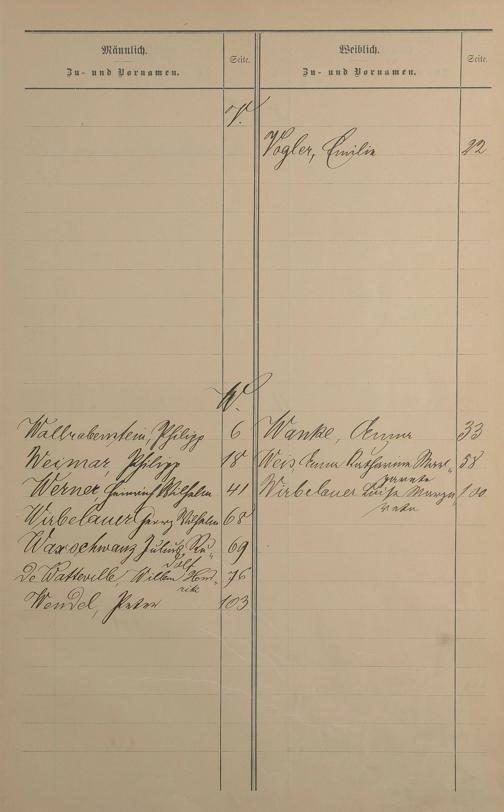 Männlich.
Zu- und Vornamen.
Seite.
Weiblich.
Zu- und Vornamen.
Seite.
V.
Vogler, Emilie 22
W.
Wallrabenstein, Philipp 6
Weimar, Philipp 18
Werner, Heinrich Wilhelm 41
Wirbelauer Georg Wilhelm 68
Warschwanz Julius Ru-
dolf 69
De Watteville, Willem Hen-
rik 76
Wendel, Peter 103
Wanke, Anna 33
Weis, Anna Katharina Mar-
garete 58
Wirbelauer Luise Marga-
rete 100